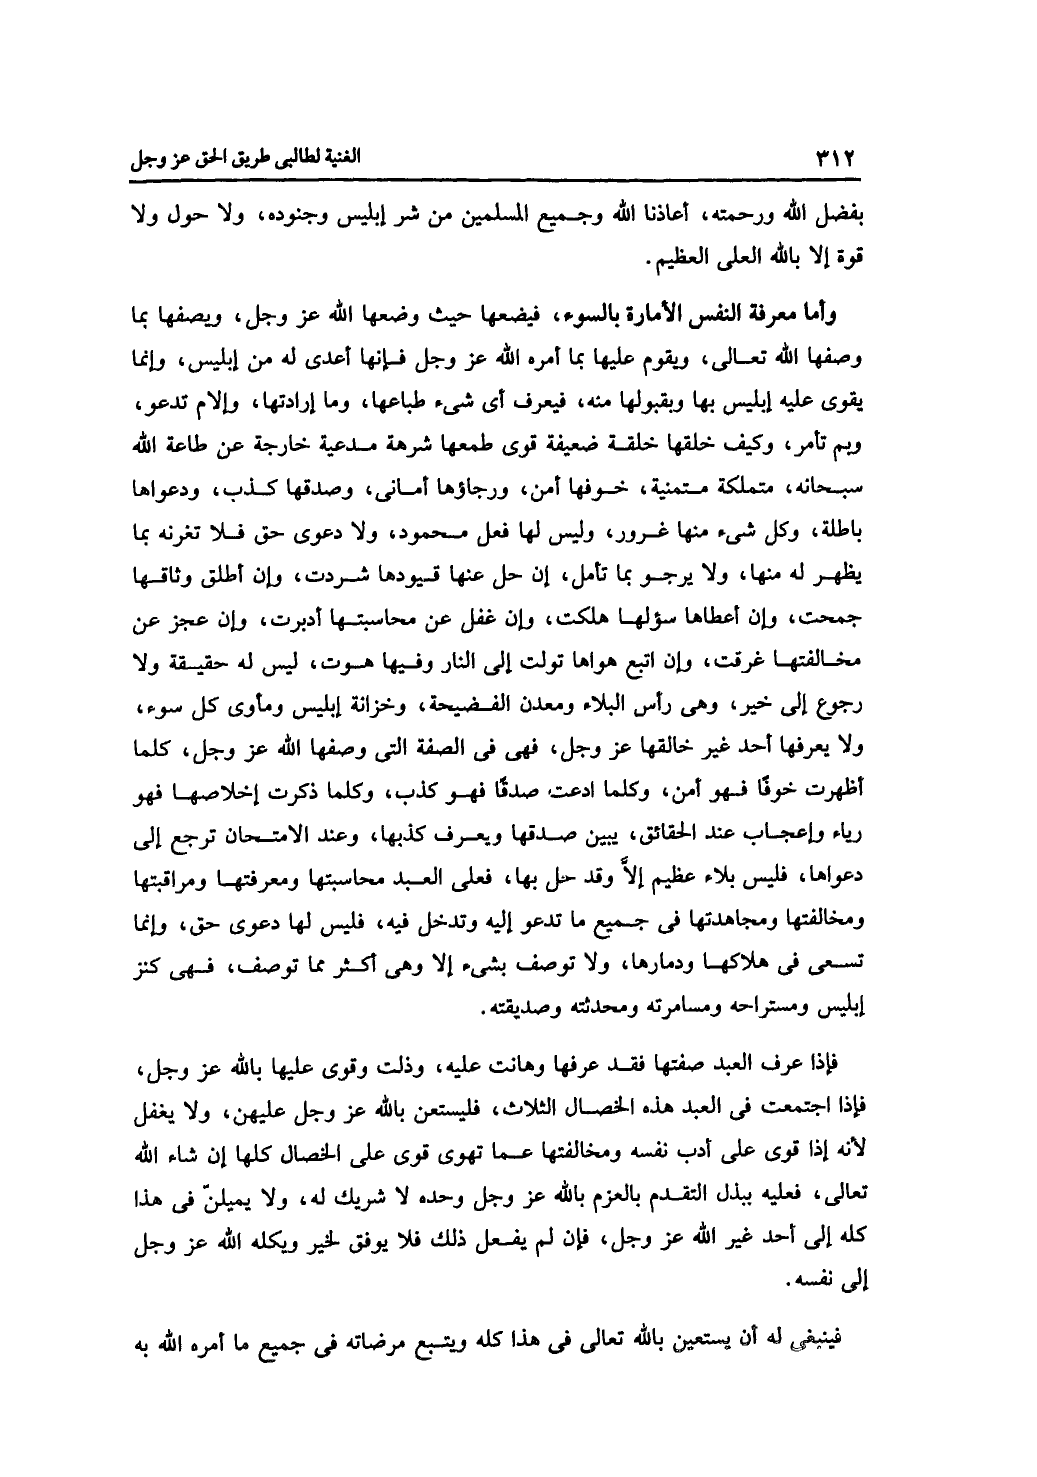 ٣١٢
الغنية لطالبى طريق الحق عز وجل
بفضل الله ورحمته، أعاذنا الله وجميع المسلمين من شر إبليس وجنوده، ولا حول ولا
قوة إلا بالله العلى العظيم.
وأما معرفة النفس الأمارة بالسوء، فيضعها حيث وضعها الله عز وجل، ويصفها بما
وصفها الله تعالى، ويقوم عليها بما أمره الله عز وجل فإنها أعدى له من إبليس، وإنما
يقوى عليه إبليس بها وبقبولها منه، فيعرف أى شىء طباعها، وما إرادتها، وإلام تدعو،
وبم تأمر، وكيف خلقها خلقة ضعيفة قوى طمعها شرهة مدعية خارجة عن طاعة الله
سبحانه، متملكة متمنية، خوفها أمن، ورجاؤها أمانى، وصدقها كذب، ودعواها
باطلة، وكل شىء منها غرور، وليس لها فعل محمود، ولا دعوى حق فلا تغرنه بما
يظهر له منها، ولا يرجو بما تأمل، إن حل عنها قيودها شردت، وإن أطلق وثاقها
جمحت، وإن أعطاها سؤلها هلكت، وإن غفل عن محاسبتها أدبرت، وإن عجز عن
مخالفتها غرقت، وإن اتبع هواها تولت إلى النار وفيها هوت، ليس له حقيقة ولا
رجوع إلى خير، وهى رأس البلاء ومعدن الفضيحة، وخزانة إبليس ومأوى كل سوء،
ولا يعرفها أحد غير خالقها عز وجل، فهى فى الصفة التى وصفها الله عز وجل، كلما
أظهرت خوفًا فهو أمن، وكلما ادعت صدقًا فهو كذب، وكلما ذكرت إخلاصها فهو
رياء وإعجاب عند الحقائق، يبين صدقها ويعرف كذبها، وعند الامتحان ترجع إلى
دعواها، فليس بلاء عظيم إلاَّ وقد حل بها، فعلى العبد محاسبتها ومعرفتها ومراقبتها
ومخالفتها ومجاهدتها فى جميع ما تدعو إليه وتدخل فيه، فليس لها دعوى حق، وإنما
تسعى فى هلاكها ودمارها، ولا توصف بشىء إلا وهى أكثر مما توصف، فهى كنز
إبليس ومستراحه ومسامرته ومحدثته وصديقته.
فإذا عرف العبد صفتها فقد عرفها وهانت عليه، وذلت وقوى عليها بالله عز وجل،
فإذا اجتمعت فى العبد هذه الخصال الثلاث، فليستعن بالله عز وجل عليهن، ولا يغفل
لأنه إذا قوى على أدب نفسه ومخالفتها عما تهوى قوى على الخصال كلها إن شاء الله
تعالى، فعليه ببذل التقدم بالعزم بالله عز وجل وحده لا شريك له، ولا يميلنّ فى هذا
كله إلى أحد غير الله عز وجل، فإن لم يفعل ذلك فلا يوفق لخير ويكله الله عز وجل
إلى نفسه.
فينبغى له أن يستعين بالله تعالى فى هذا كله ويتبع مرضاته فى جميع ما أمره الله به